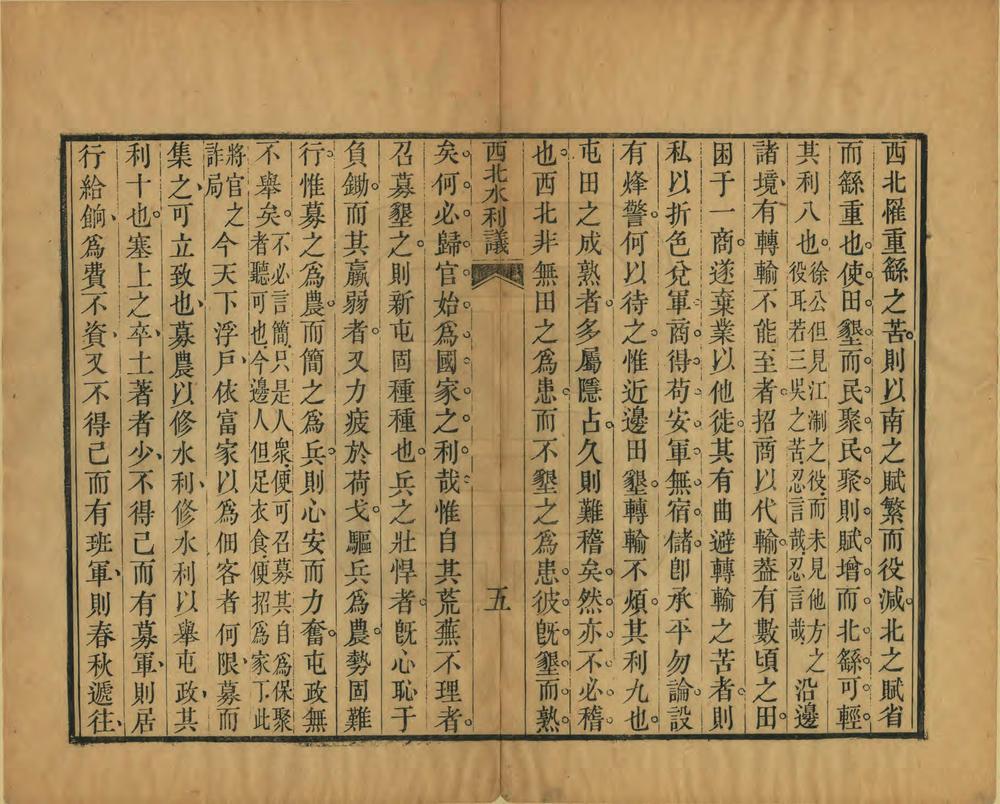 西北罹重繇之苦則以南之賦繁而役減北之賦省
而繇重也使田墾而民聚民聚則賦增而北繇可輕
其利八也徐公但見江淛之役而未見他方之沿邊
役耳若三吳之苦忍言哉忍言哉
諸境有轉輸不能至者招商以代輸葢有數頃之田
困于一商遂棄業以他徙其有曲避轉輸之苦者則
私以折色兌軍商得苟安軍無宿儲卽承平勿論設
有烽警何以待之惟近邊田墾轉輸不煩其利九也
屯田之成熟者多屬隱占久則難稽矣然亦不必稽
也西北非無田之為患而不墾之為患彼旣墾而熟
西北水利議
五
矣何必歸官始為國家之利哉惟自其荒蕪不理者
召募墾之則新屯固種種也兵之壯悍者旣心恥于
負鋤而其羸弱者又力疲於荷戈驅兵為農勢固難
行惟募之為農而簡之為兵則心安而力奮屯政無
不舉矣不必言簡只是人衆便可召募其自為保聚
者聽可也今邊人但足衣食便招為家丁此
將官之
詐局今天下浮戶依富家以為佃客者何限募而
集之可立致也募農以修水利修水利以舉屯政其
利十也塞上之卒土著者少不得已而有募軍則居
行給餉為費不資又不得已而有班軍則春秋遞往